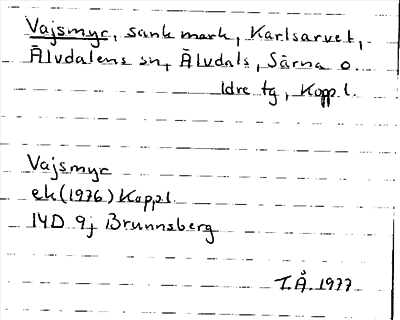 Vajsmyr, sank mark, Karlsarvet,
Älvdalens sn, Älvdals, Särna o.
Idre tg, Kopp.l.
Vajsmyr
ek (1976) Kopp.l.
14D 9j Brunnsberg
T.Å. 1977